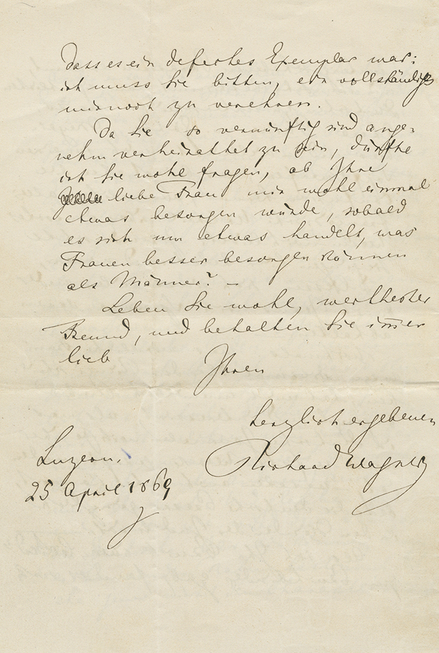 dass es ein defectes Exemplar war:
ich muss Sie bitten, ein vollständiges
mir noch zu verehren.
Da Sie so vernünftig sind ange-
nehm verheirathet zu sein, dürfte
ich Sie wohl fragen, ob Ihre
liebe Frau mir wohl einmal
etwas besorgen würde, sobald
es sich um etwas handelt, was
Frauen besser besorgen können
als Männer? —
Leben Sie wohl, werthester
Freund, und behalten Sie immer
lieb
Ihren
herzlich ergebenen
Richard Wagner
Luzern.
25 April 1869